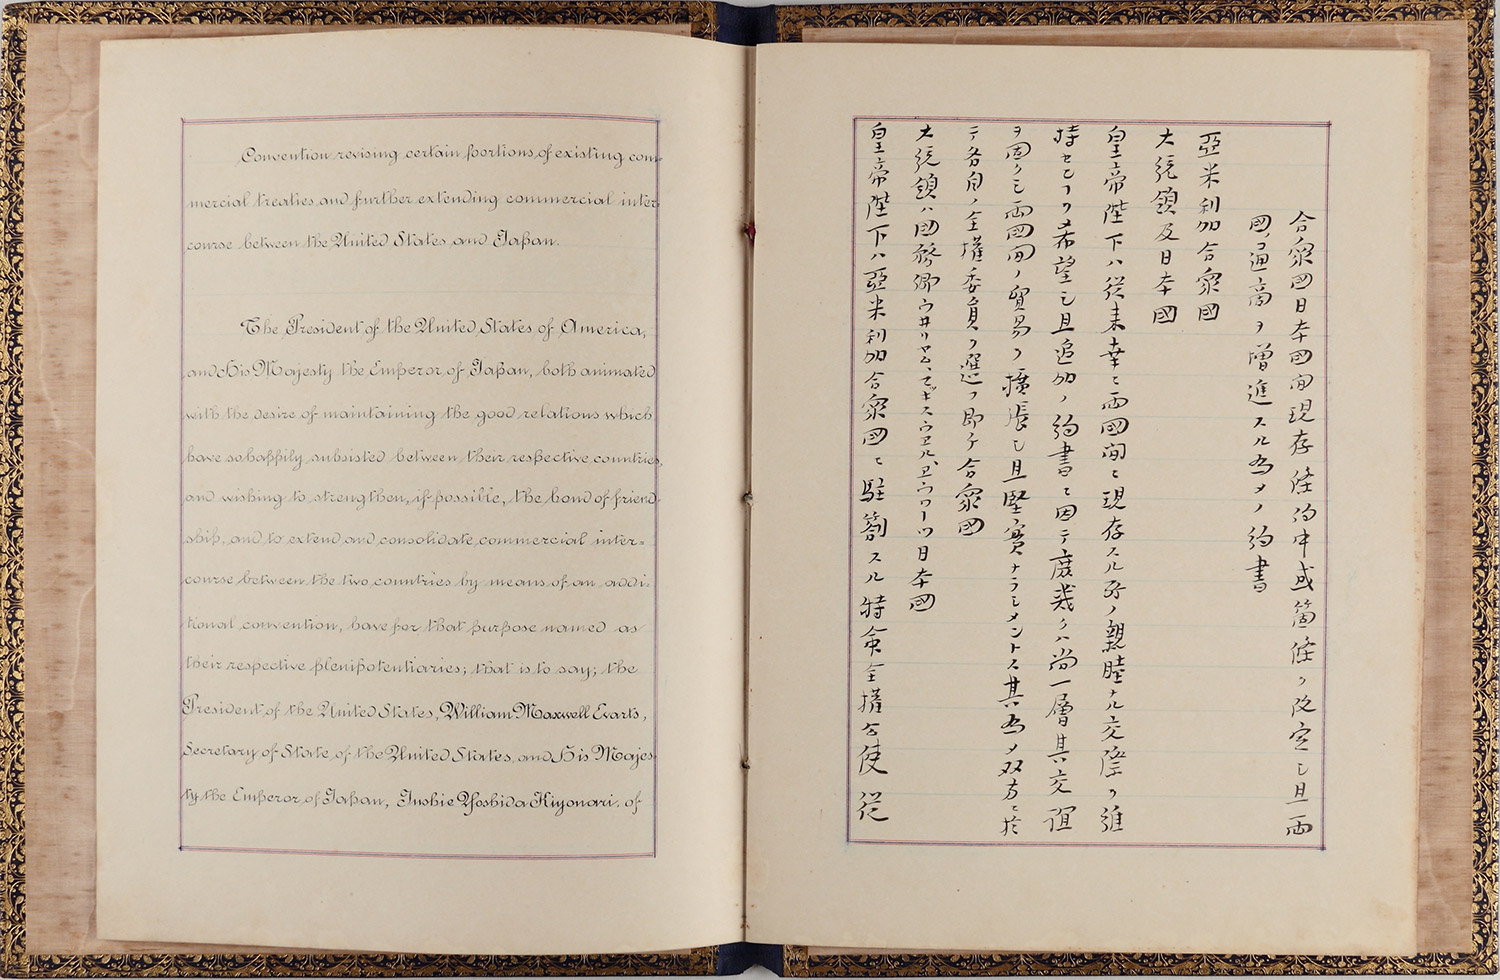 Convention revising certain portions of existing com-
mercial treaties and further extending commercial inter-
course between the United States and Japan.
The President of the United States of America,
and His Majesty the Emperor of Japan, both animated
with the desire of maintaining the good relations which
have so happily subsisted between their respective countries,
and wishing to strengthen, if possible, the bond of friend-
ship, and to extend and consolidate commercial inter=
course between the two countries by means of an addi-
tional convention, have for that purpose named as
their respective plenipotentiaries; that is to say; the
President of the United States, William Maxwell Evarts,
Secretary of State of the United States, and His Majes-
ty the Emperor of Japan, Jushie Yoshida Kiyonari, of
合衆国日本国間現存條約中或箇條ヲ改定シ且両
国ノ通商ヲ増進スル為メノ約書
亞米利加合衆國
大統領及日本國
皇帝陛下ハ従来幸ニ両國間ニ現存スル所ノ親睦ナル交際ヲ維
持セン㕝ヲ希望シ且追加ノ約書ニ因テ庶幾クハ尚一層其交誼
ヲ固クシ両國間ノ貿易ヲ擴張シ且堅實ナラシメントス其為メ双方ニ於
テ各自ノ全權委員ヲ選ヲ即チ合衆國
大統領ハ國務卿ウ井リアム、マキスウエル、エウワーツ日本國
皇帝陛下ハ亞米利加合衆国ニ駐箚スル特命全權公使従